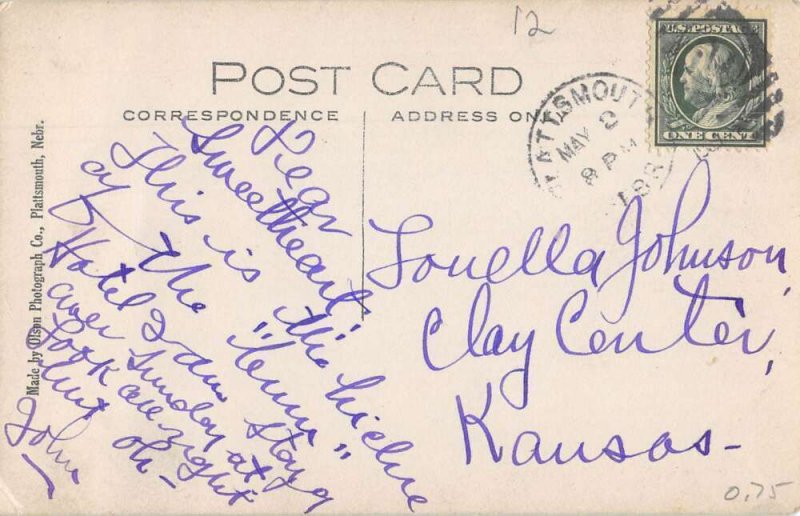 12
POST CARD
CORRESPONDENCE ADDRESS ON
U.S. POSTAGE
ONE CENT
PLATTSMOUTH
MAY 2
8 PM
Made by Olson Photograph Co., Plattsmouth, Nebr.
Dear
Sweetheart,
This is the
of the
Hotel I am stay
over Sunday at
Look all right
but oh-
John
Louella Johnson,
Clay Center,
Kansas-
0.75